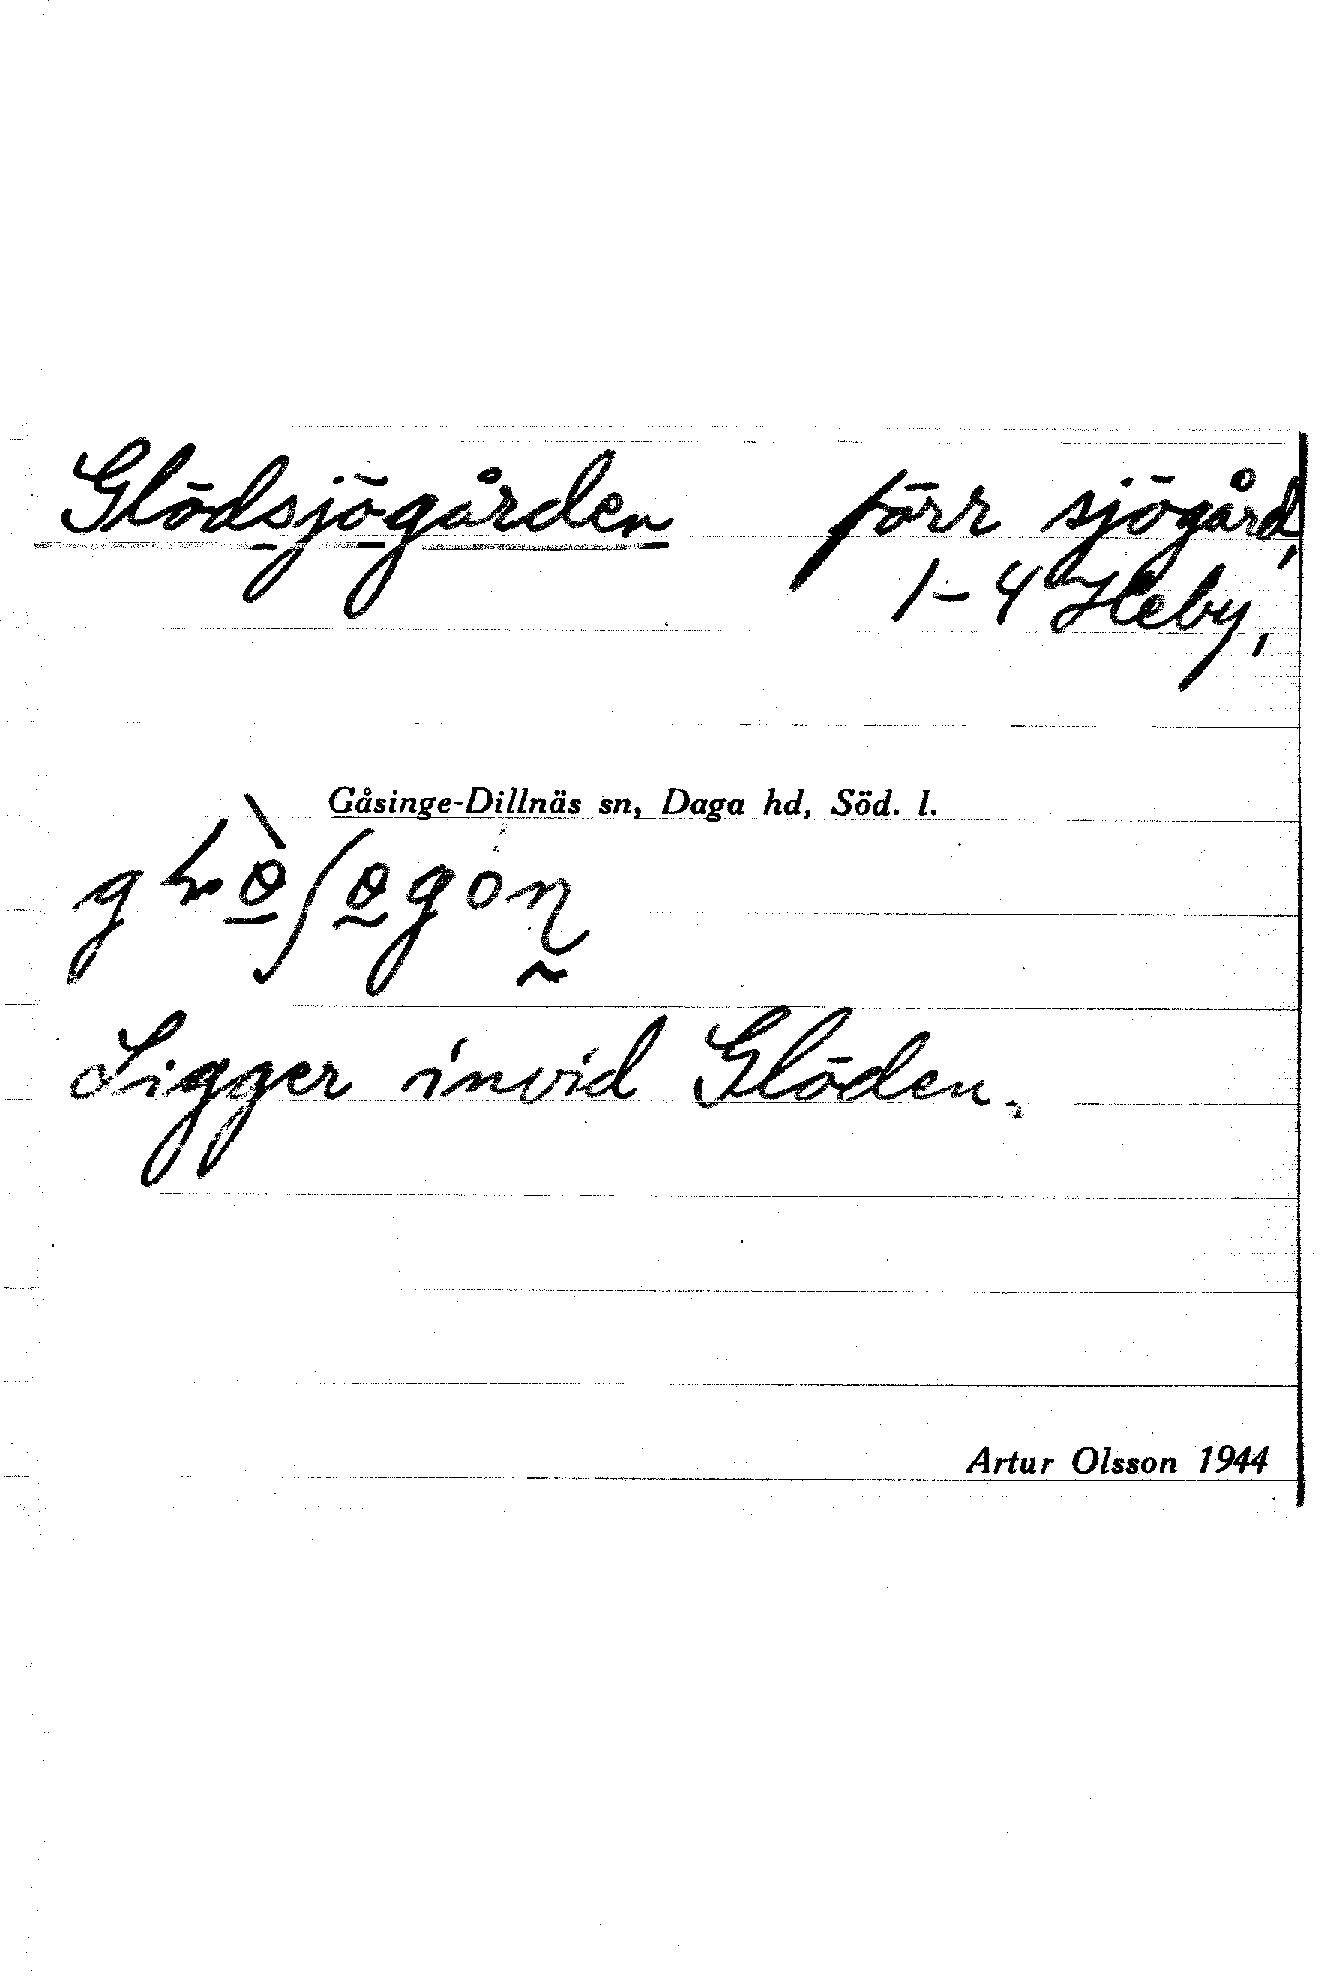 Glödsjögården förr sjögård,
1-4 Heby,
Gåsinge-Dillnäs sn, Daga hd, Söd. l.
Ligger invid Glöden.
Artur Olsson 1944